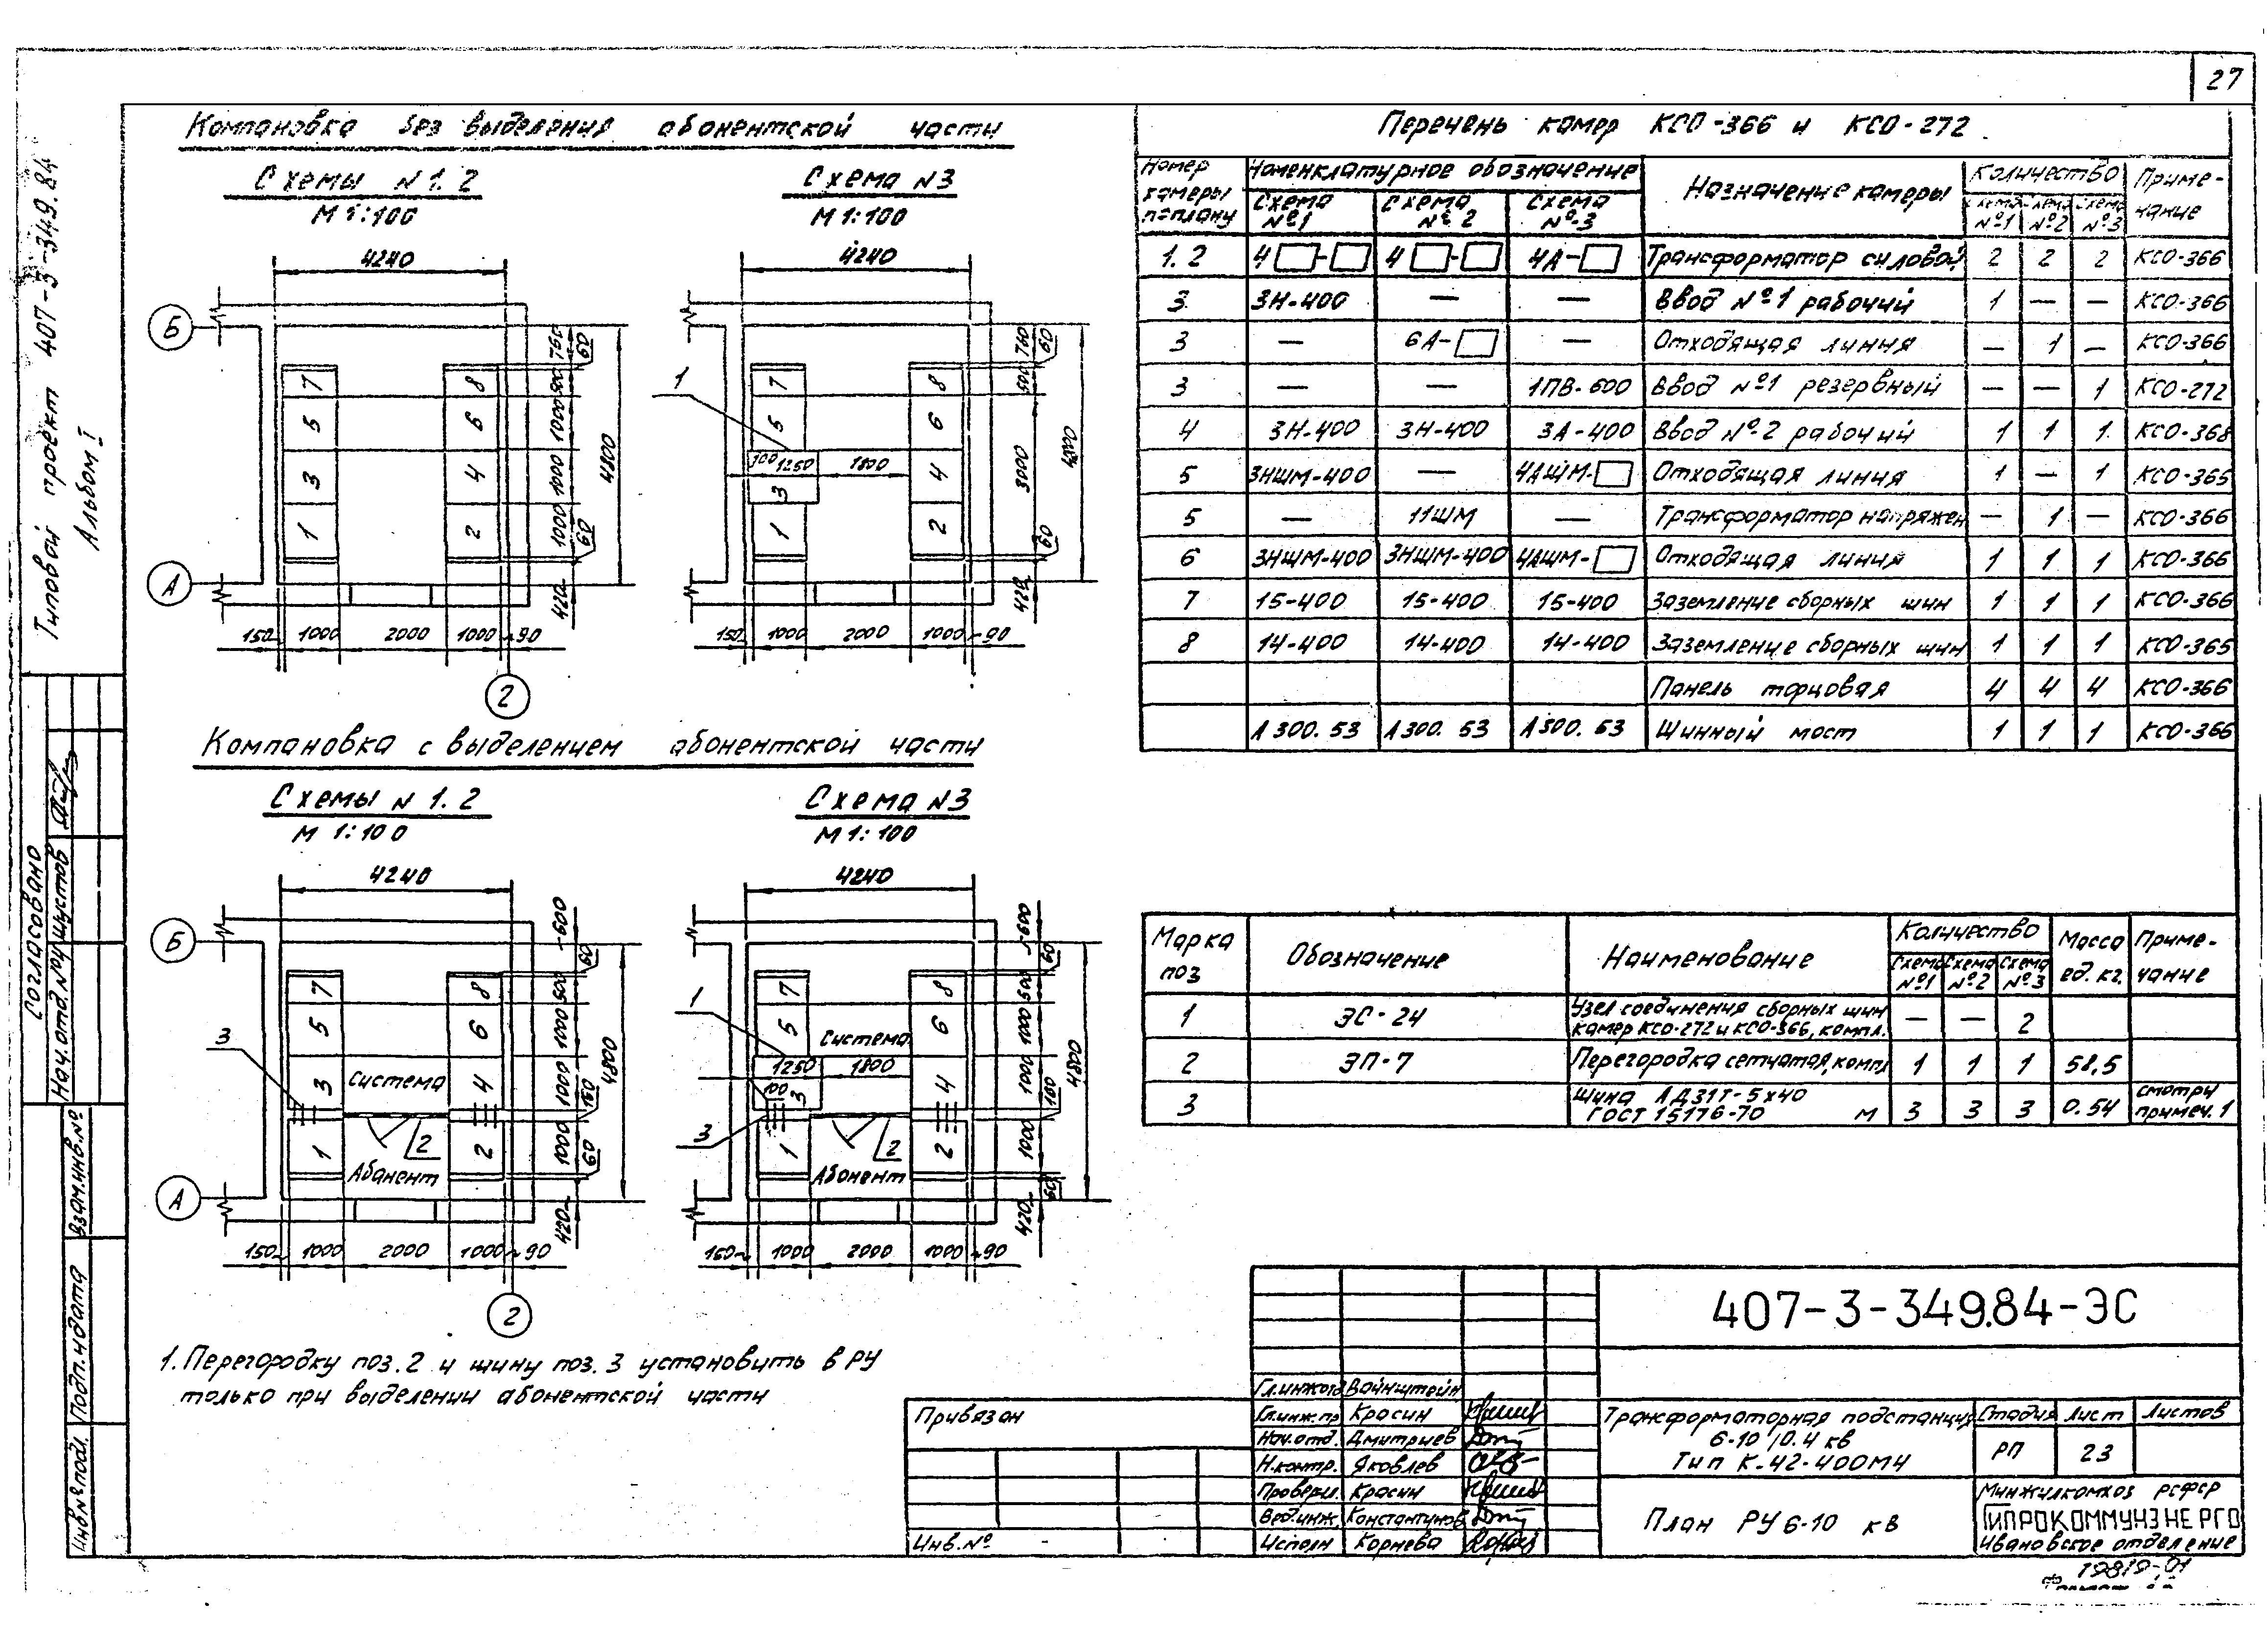 27
Типовой проект 407-3-349.84
Альбом I
Компановка без выделения абонентской части
Схемы N 1.2
М 1:100
4240
Б
А
7
5
3
1
8
6
4
2
760
60
500
1000
1000
1000
60
420
4800
150
1000
2000
1000
90
2
Схема N3
М 1:100
4240
1
7
5
3
1
8
6
4
2
100
1250
1800
760
60
500
3000
60
420
4800
150
1000
2000
1000
90
Компановка с выделением абонентской части
Схемы N 1.2
М 1:100
4240
Б
А
3
7
5
3
1
8
6
4
2
Система
2
Абанент
600
60
500
1000
1000
160
1000
60
420
4800
150
1000
2000
1000
90
2
Схема N3
М 1:100
4240
1
3
7
5
3
1
8
6
4
2
Система
1250
1800
100
2
Абонент
600
60
500
1000
1000
160
1000
60
420
4800
150
1000
2000
1000
90
1. Перегородку поз. 2 и шину поз. 3 установить в РУ
только при выделении абонентской части
Перечень камер КСО-366 и КСО-272
Номер камеры по плану Номенклатурное обозначение Назначение камеры Количество Примечание
Схема №1 Схема №2 Схема №3 Схема №1 Схема №2 Схема №3
1. 2 4 - 4 - 4А- Трансформатор силовой 2 2 2 КСО-366
3 3Н-400 — — Ввод №1 рабочий 1 — — КСО-366
3 — 6А- — Отходящая линия — 1 — КСО-366
3 — — 1ПВ-600 Ввод №1 резервный — — 1 КСО-272
4 3Н-400 3Н-400 3А-400 Ввод №2 рабочий 1 1 1 КСО-368
5 3НШМ-400 — 4АШМ- Отходящая линия 1 — 1 КСО-365
5 — 11ШМ — Трансформатор напряжен — 1 — КСО-366
6 3НШМ-400 3НШМ-400 4АШМ- Отходящая линия 1 1 1 КСО-366
7 15-400 15-400 15-400 Заземление сборных шин 1 1 1 КСО-366
8 14-400 14-400 14-400 Заземление сборных шин 1 1 1 КСО-365
Панель торцовая 4 4 4 КСО-366
Л300.53 Л300.53 Л300.53 Шинный мост 1 1 1 КСО-366
Марка поз Обозначение Наименование Количество Масса ед. кг. Примечание
Схема №1 Схема №2 Схема №3
1 ЭС-24 Узел соединения сборных шин камер КСО-272 и КСО-366, компл. — — 2
2 ЭП-7 Перегородка сетчатая, компл 1 1 1 58,5
3 Шина АД31Т-5х40 ГОСТ 15176-70 м 3 3 3 0.54 смотри примеч. 1
407-3-349.84-ЭС
Гл.инж.отд Вайнштейн
Гл.инж.пр Красин
Нач.отд. Дмитриев
Н.контр. Яковлев
Провери. Красин
Вед.инж. Константинов
Исполн Корнева
Трансформаторная подстанция
6-10/0.4 кв
Тип К-42-400М4
Стадия Лист Листов
РП 23
План РУ 6-10 кв
Минжилкомхоз РСФСР
ГИПРОКОММУНЭНЕРГО
Ивановское отделение
Привязан
Инв.№
19819-01
Согласовано
Нач.отд.№4 Шустов
Взам.инв.№
Подп. и дата
Инв№подл.